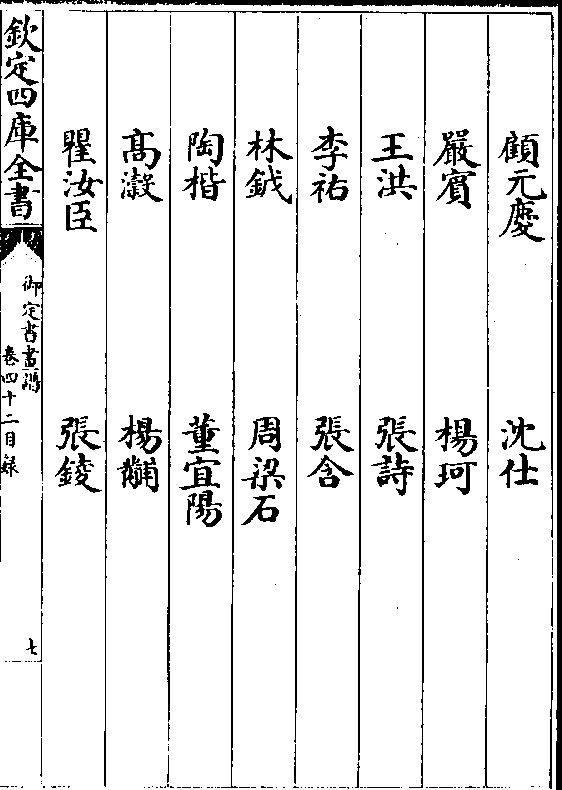 顧元慶　沈仕
嚴賓　楊珂
王洪　張詩
李祐　張含
林鉞　周梁石
陶楷　董宜陽
髙瀔　楊黼
瞿汝臣　張錂
欽定四庫全書
御定書畫譜
卷四十二目錄
七